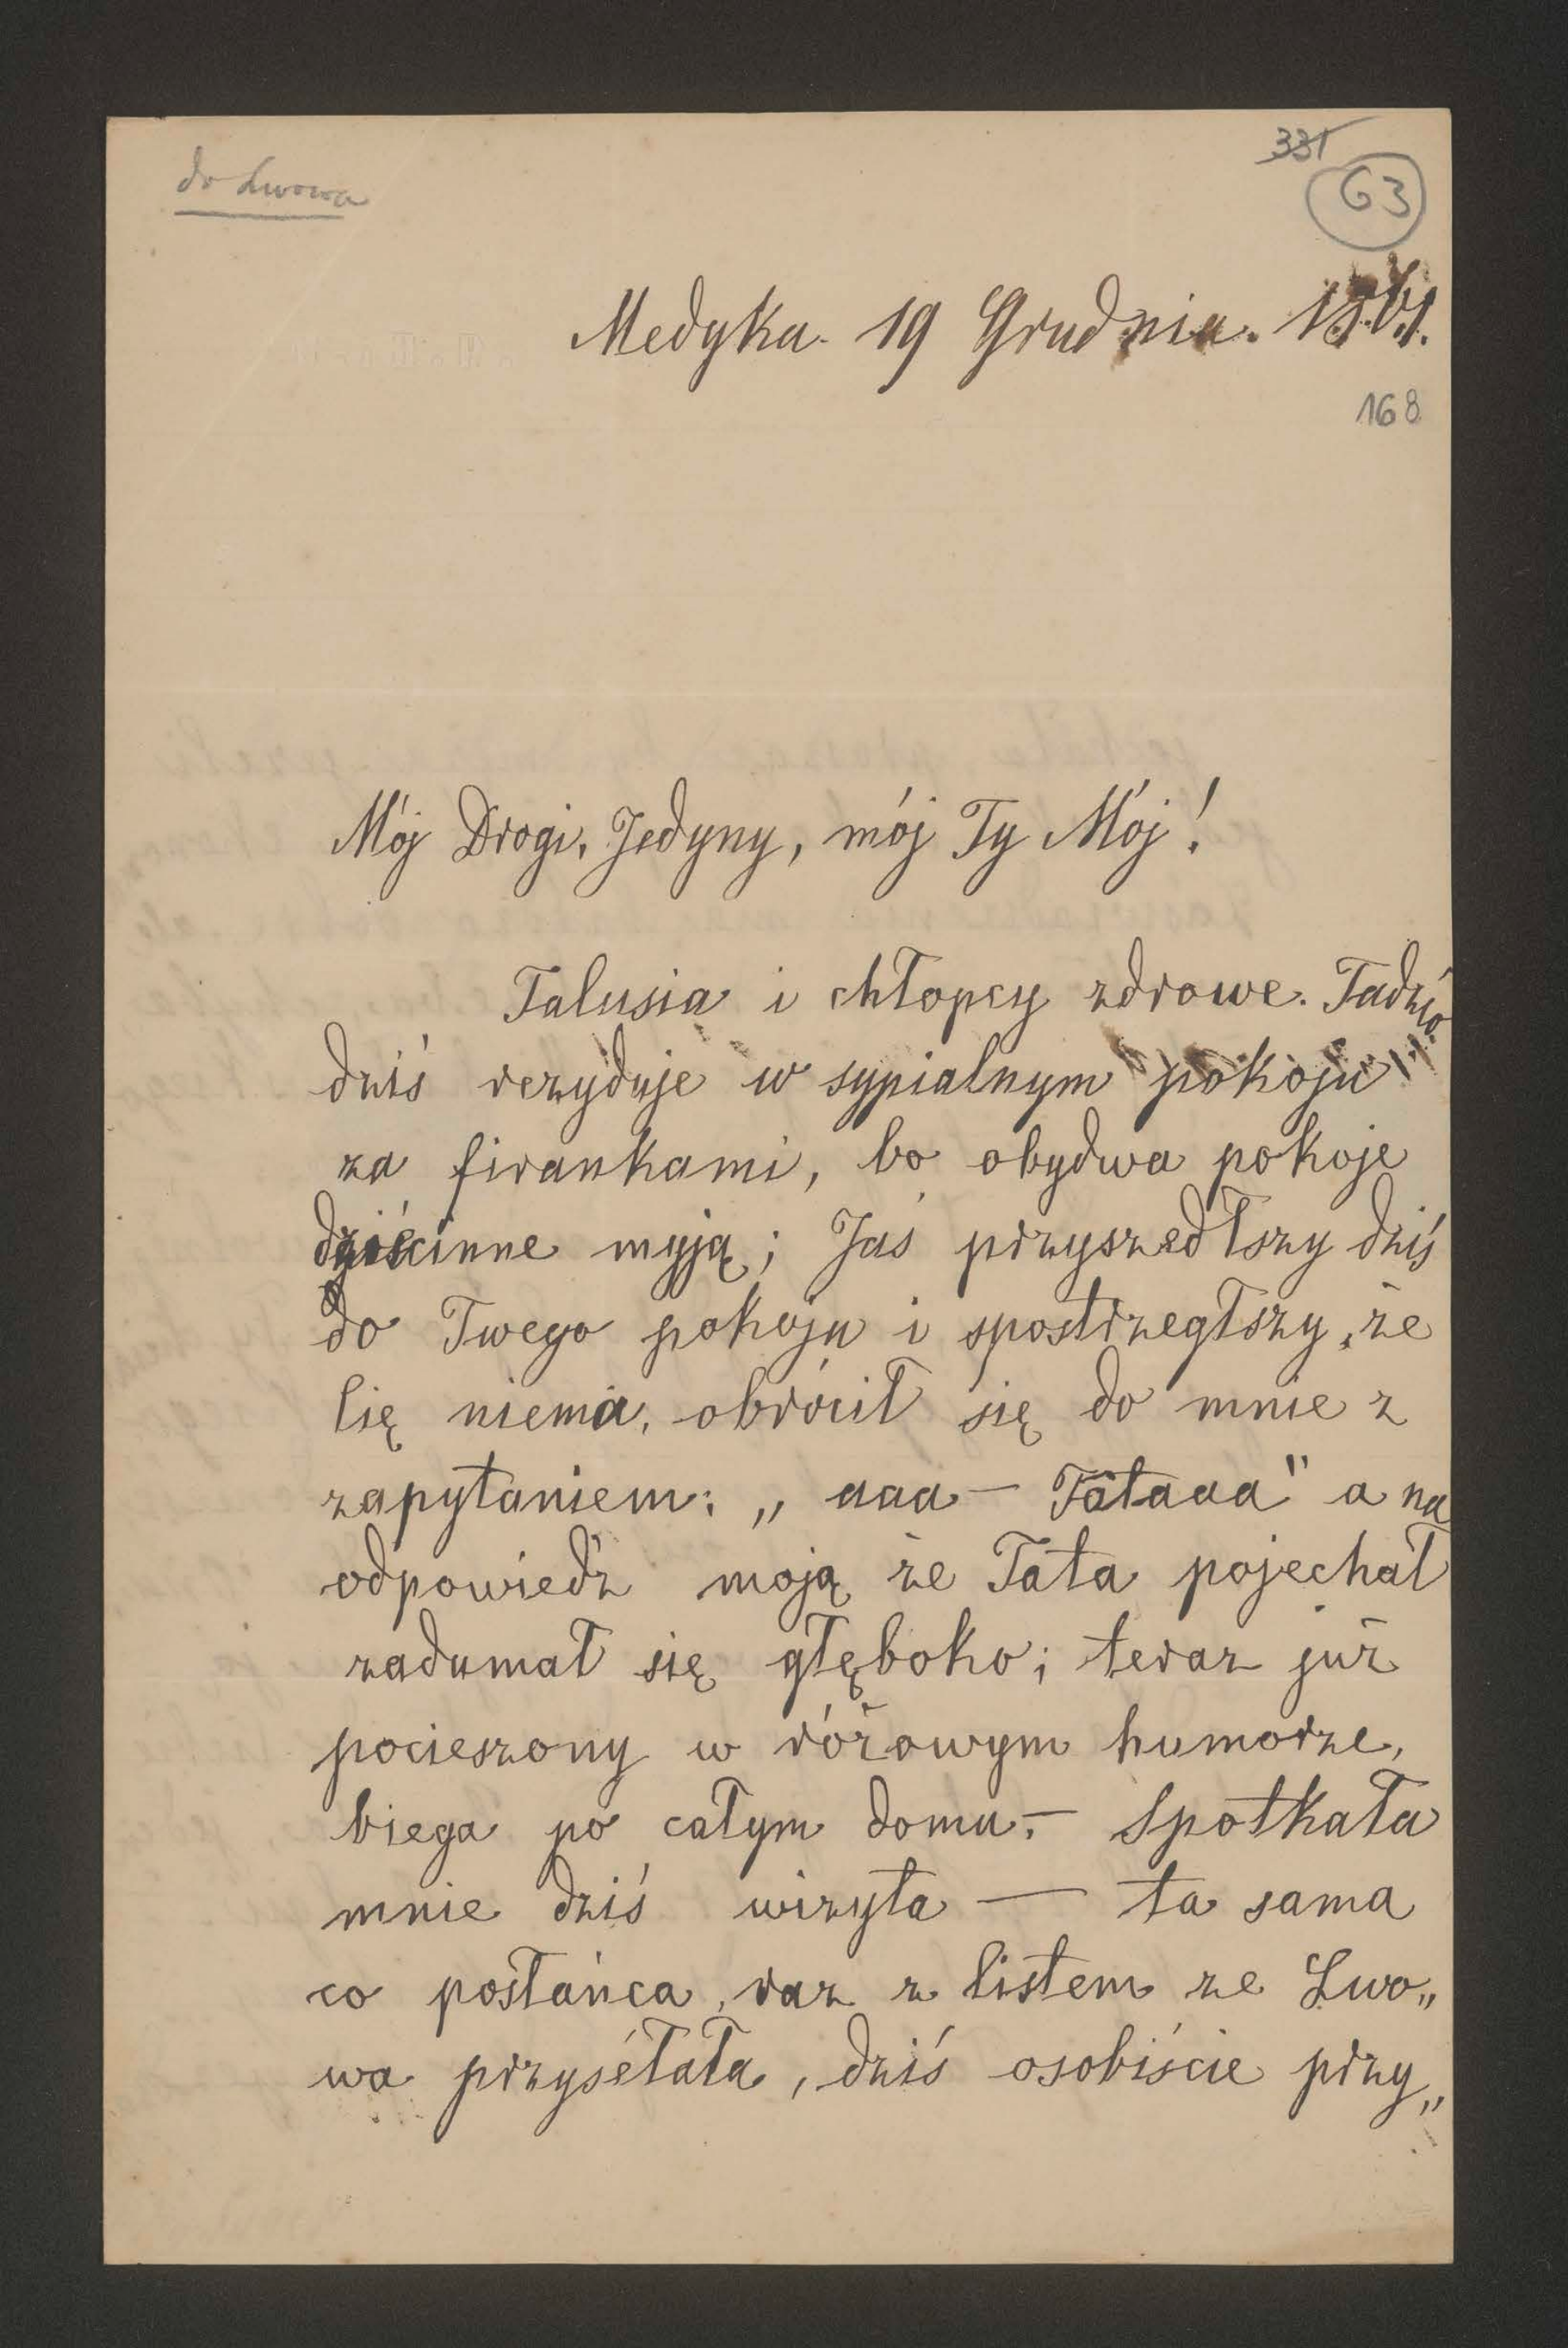 do Lwowa
331
63
Medyka. 19 Grudnia. 1861.
168
Mój Drogi, Jedyny, mój Ty Mój!
Talusia i chłopcy zdrowe. Tadzio
dziś rezyduje w sypialnym pokoju
za firankami, bo obydwa pokoje
dziecinne myją; Jaś przyszedłszy dziś
do Twego pokoju i spostrzegłszy, że
Cię niema, obrócił się do mnie z
zapytaniem: „aaa — Tataaa" a na
odpowiedz moją że Tata pojechał
zadumał się głęboko; teraz już
pocieszony w różowym humorze,
biega po całym domu. — Spotkała
mnie dziś wizyta — ta sama
co posłańca, raz z listem ze Lwo„
wa przysełała, dziś osobiście przy„